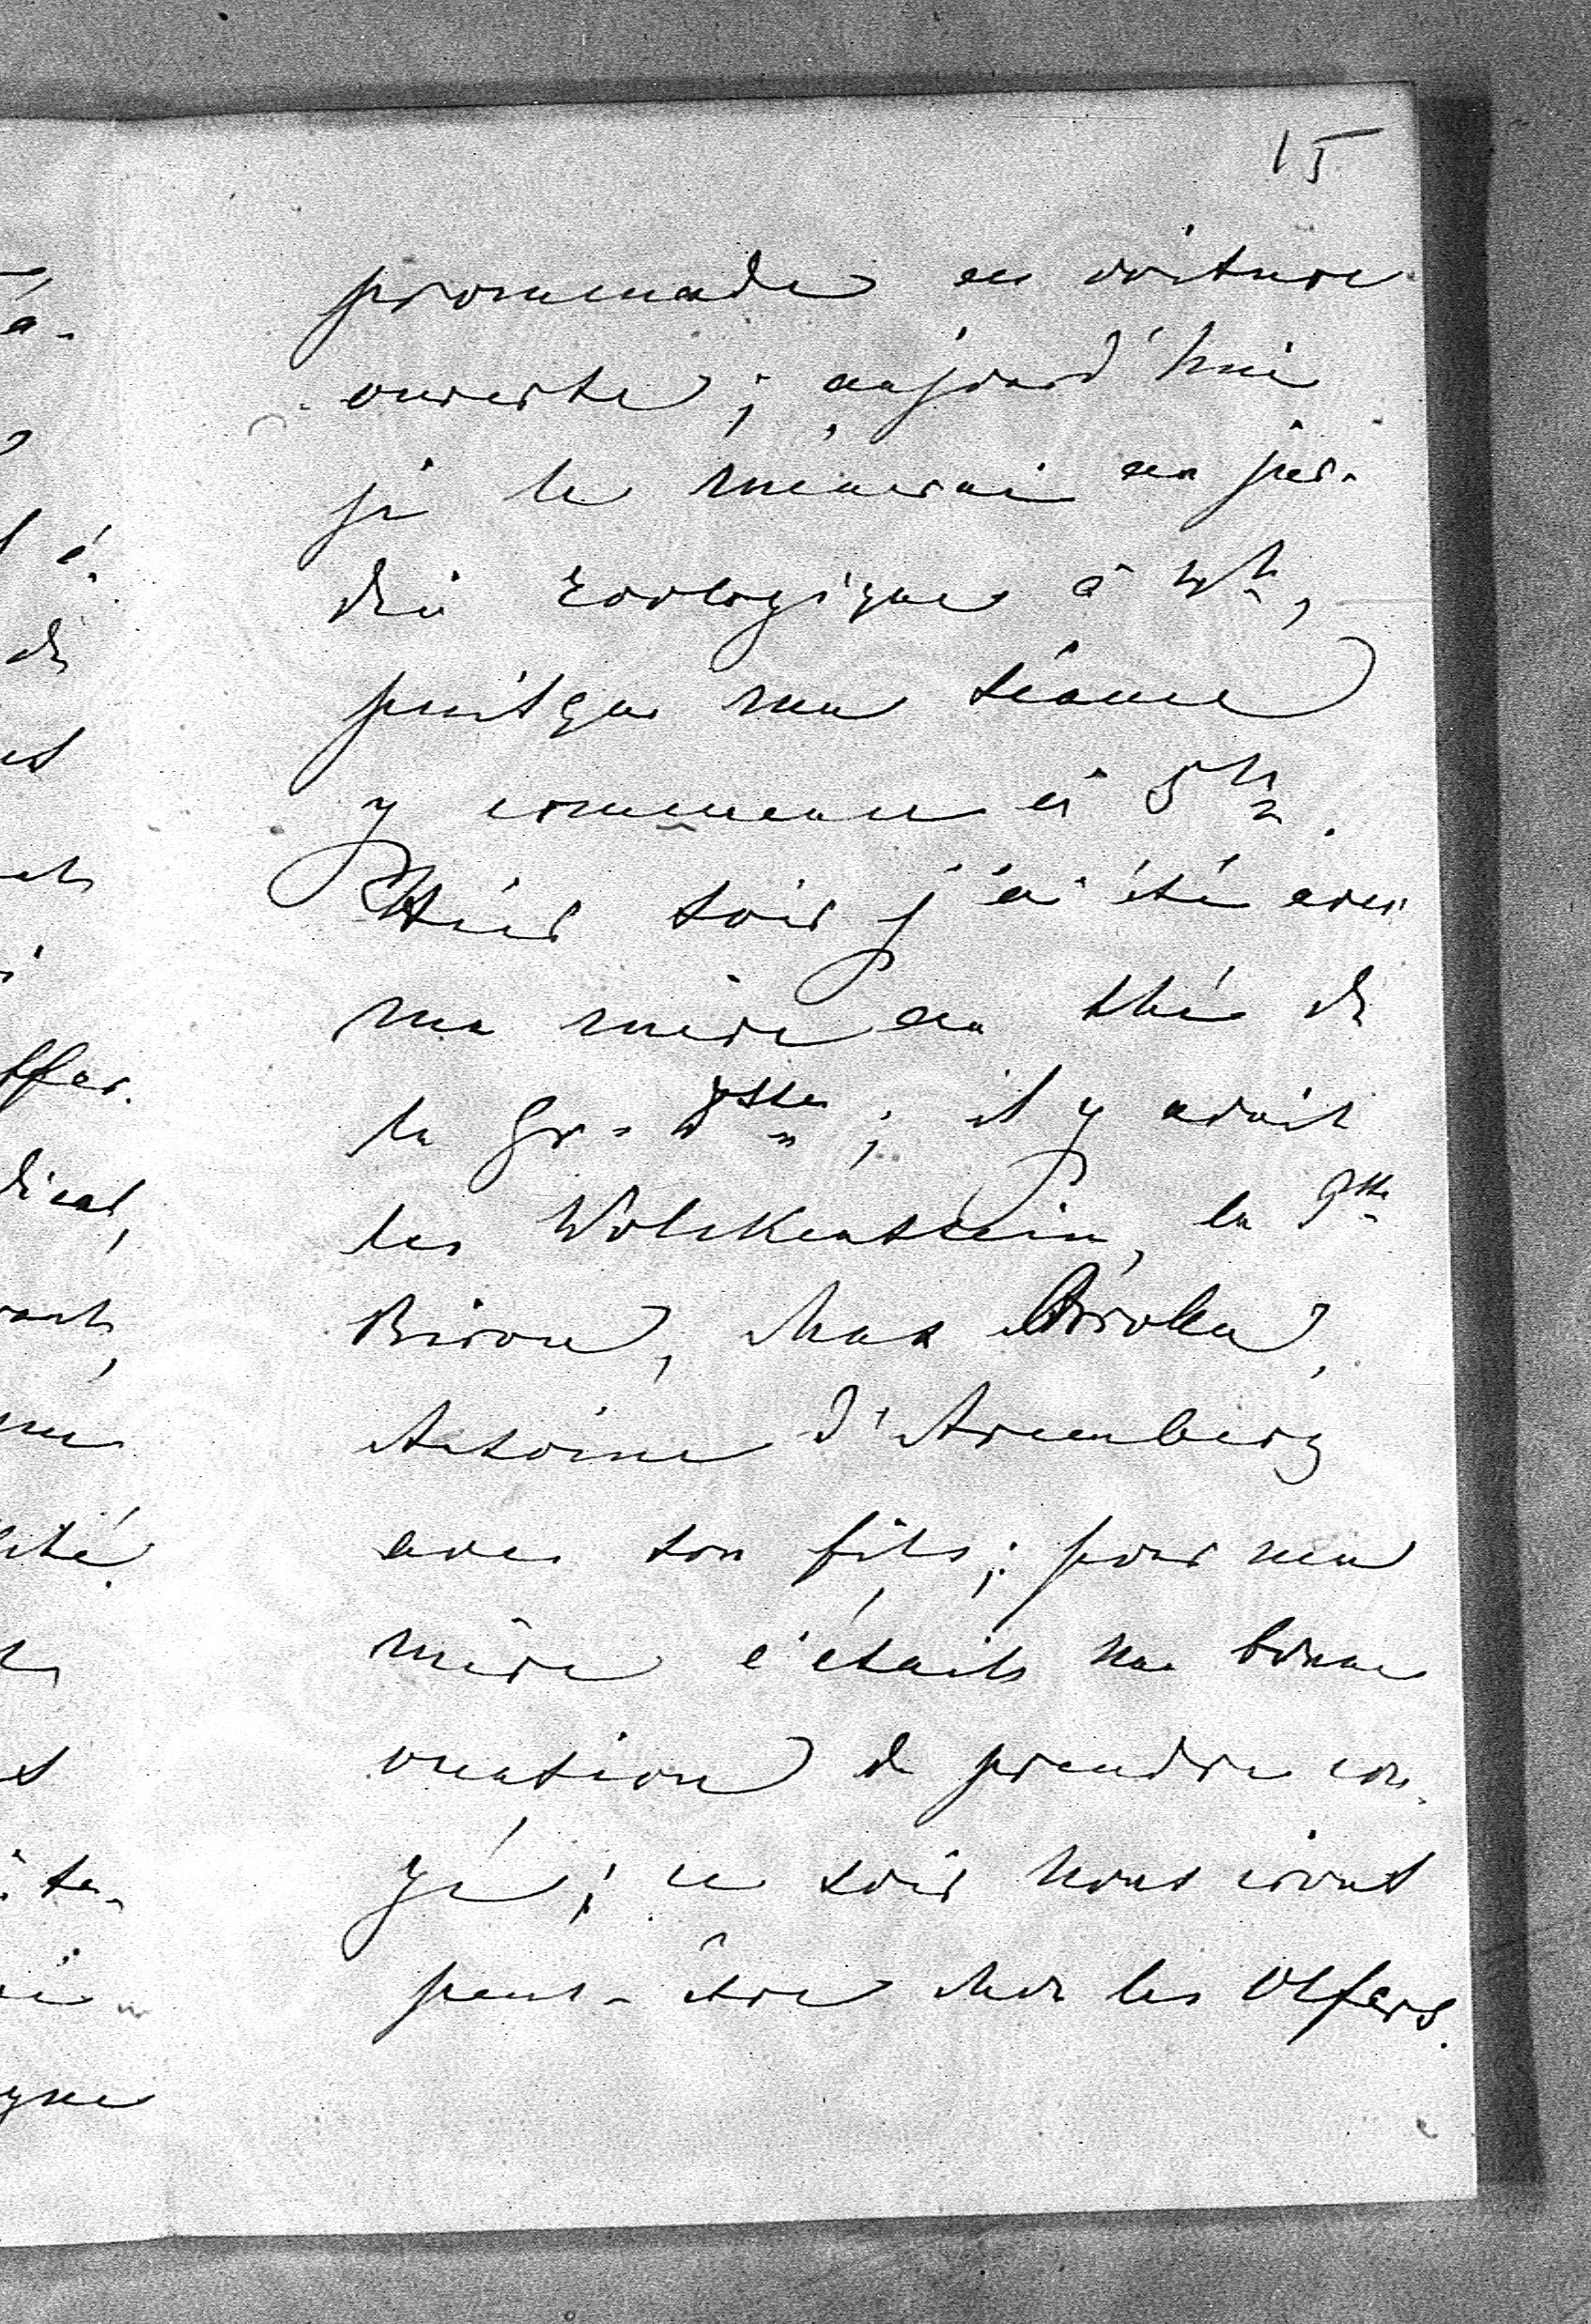 15
promenade en voiture
ouverte; aujourd'hui
je le mènerai au jar-
din zoologique à 4h,
puisque ma séance
y commence à 5h.
Hier soir j'ai été avec
ma mère au thé de
la Gr-Dsse; il y avait
les Wolkenstein, la Psse
Biron, Max
Antoine d'Aremberg
avec son fils; pour ma
mère c'était une bonne
occasion de prendre con-
gé; ce soir nous irons
peut-être chez les Olfers.